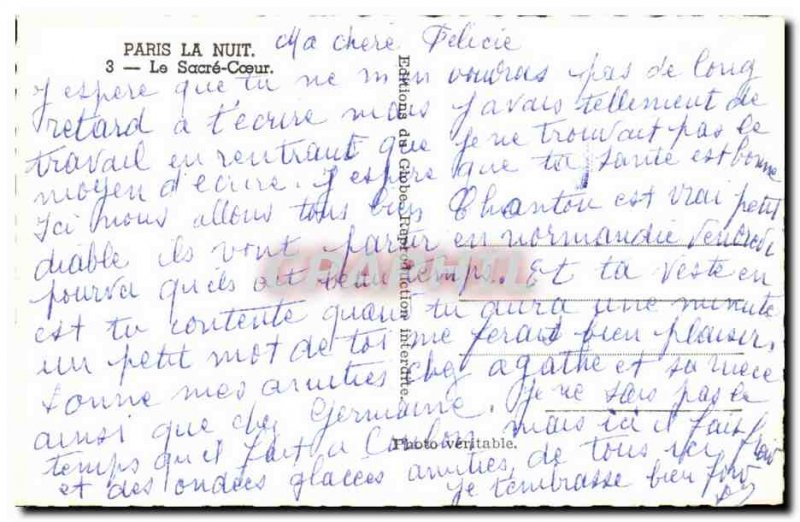 PARIS LA NUIT.
3 — Le Sacré-Cœur.
Ma chere Felicie
J espere que tu ne m en voudras pas de long
retard a t'ecrire mais j avais tellement de
travail en rentrant que je ne trouvait pas le
moyen d'ecrire. J espere que ta santé est bonne
Ici nous allons tous bien Chantou est vrai petit
diable ils vont partir en normandie Vendredi
pourva qu'ils ait beau temps. Et ta veste en
est tu contente quant tu aura une minute
un petit mot de toi me ferait bien plaisir,
donne mes amities chez agathe et sa mere
ainsi que chez Germaine. Je ne sais pas le
temps qu'il fait a mais ici il fait froid
et des ondées glacées amities de tous ici
je t'embrasse bien fort
Editions du Globe. Reproduction interdite.
Photo véritable.